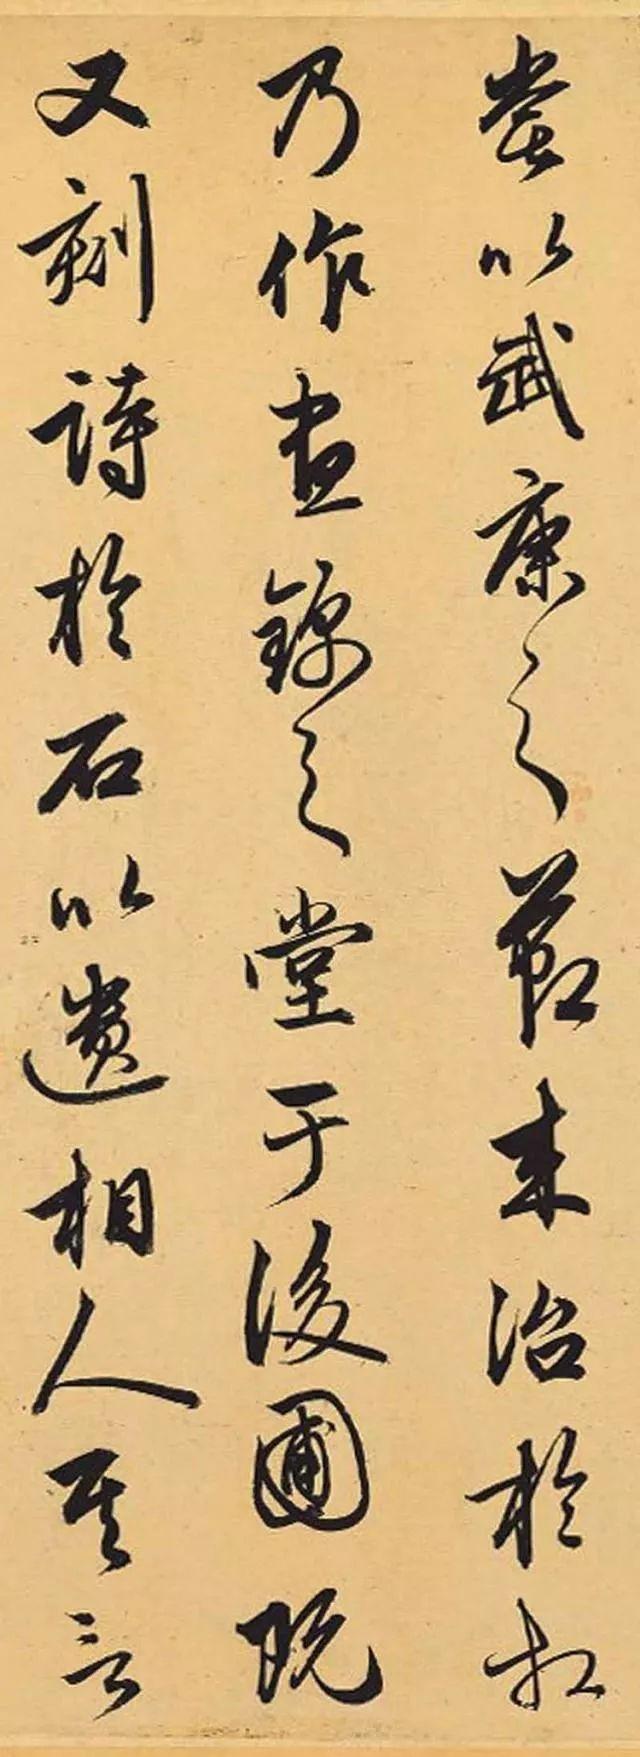 嘗以武康之節來治於相
乃作晝錦之堂于後圃既
又刻詩於石以遺相人其言